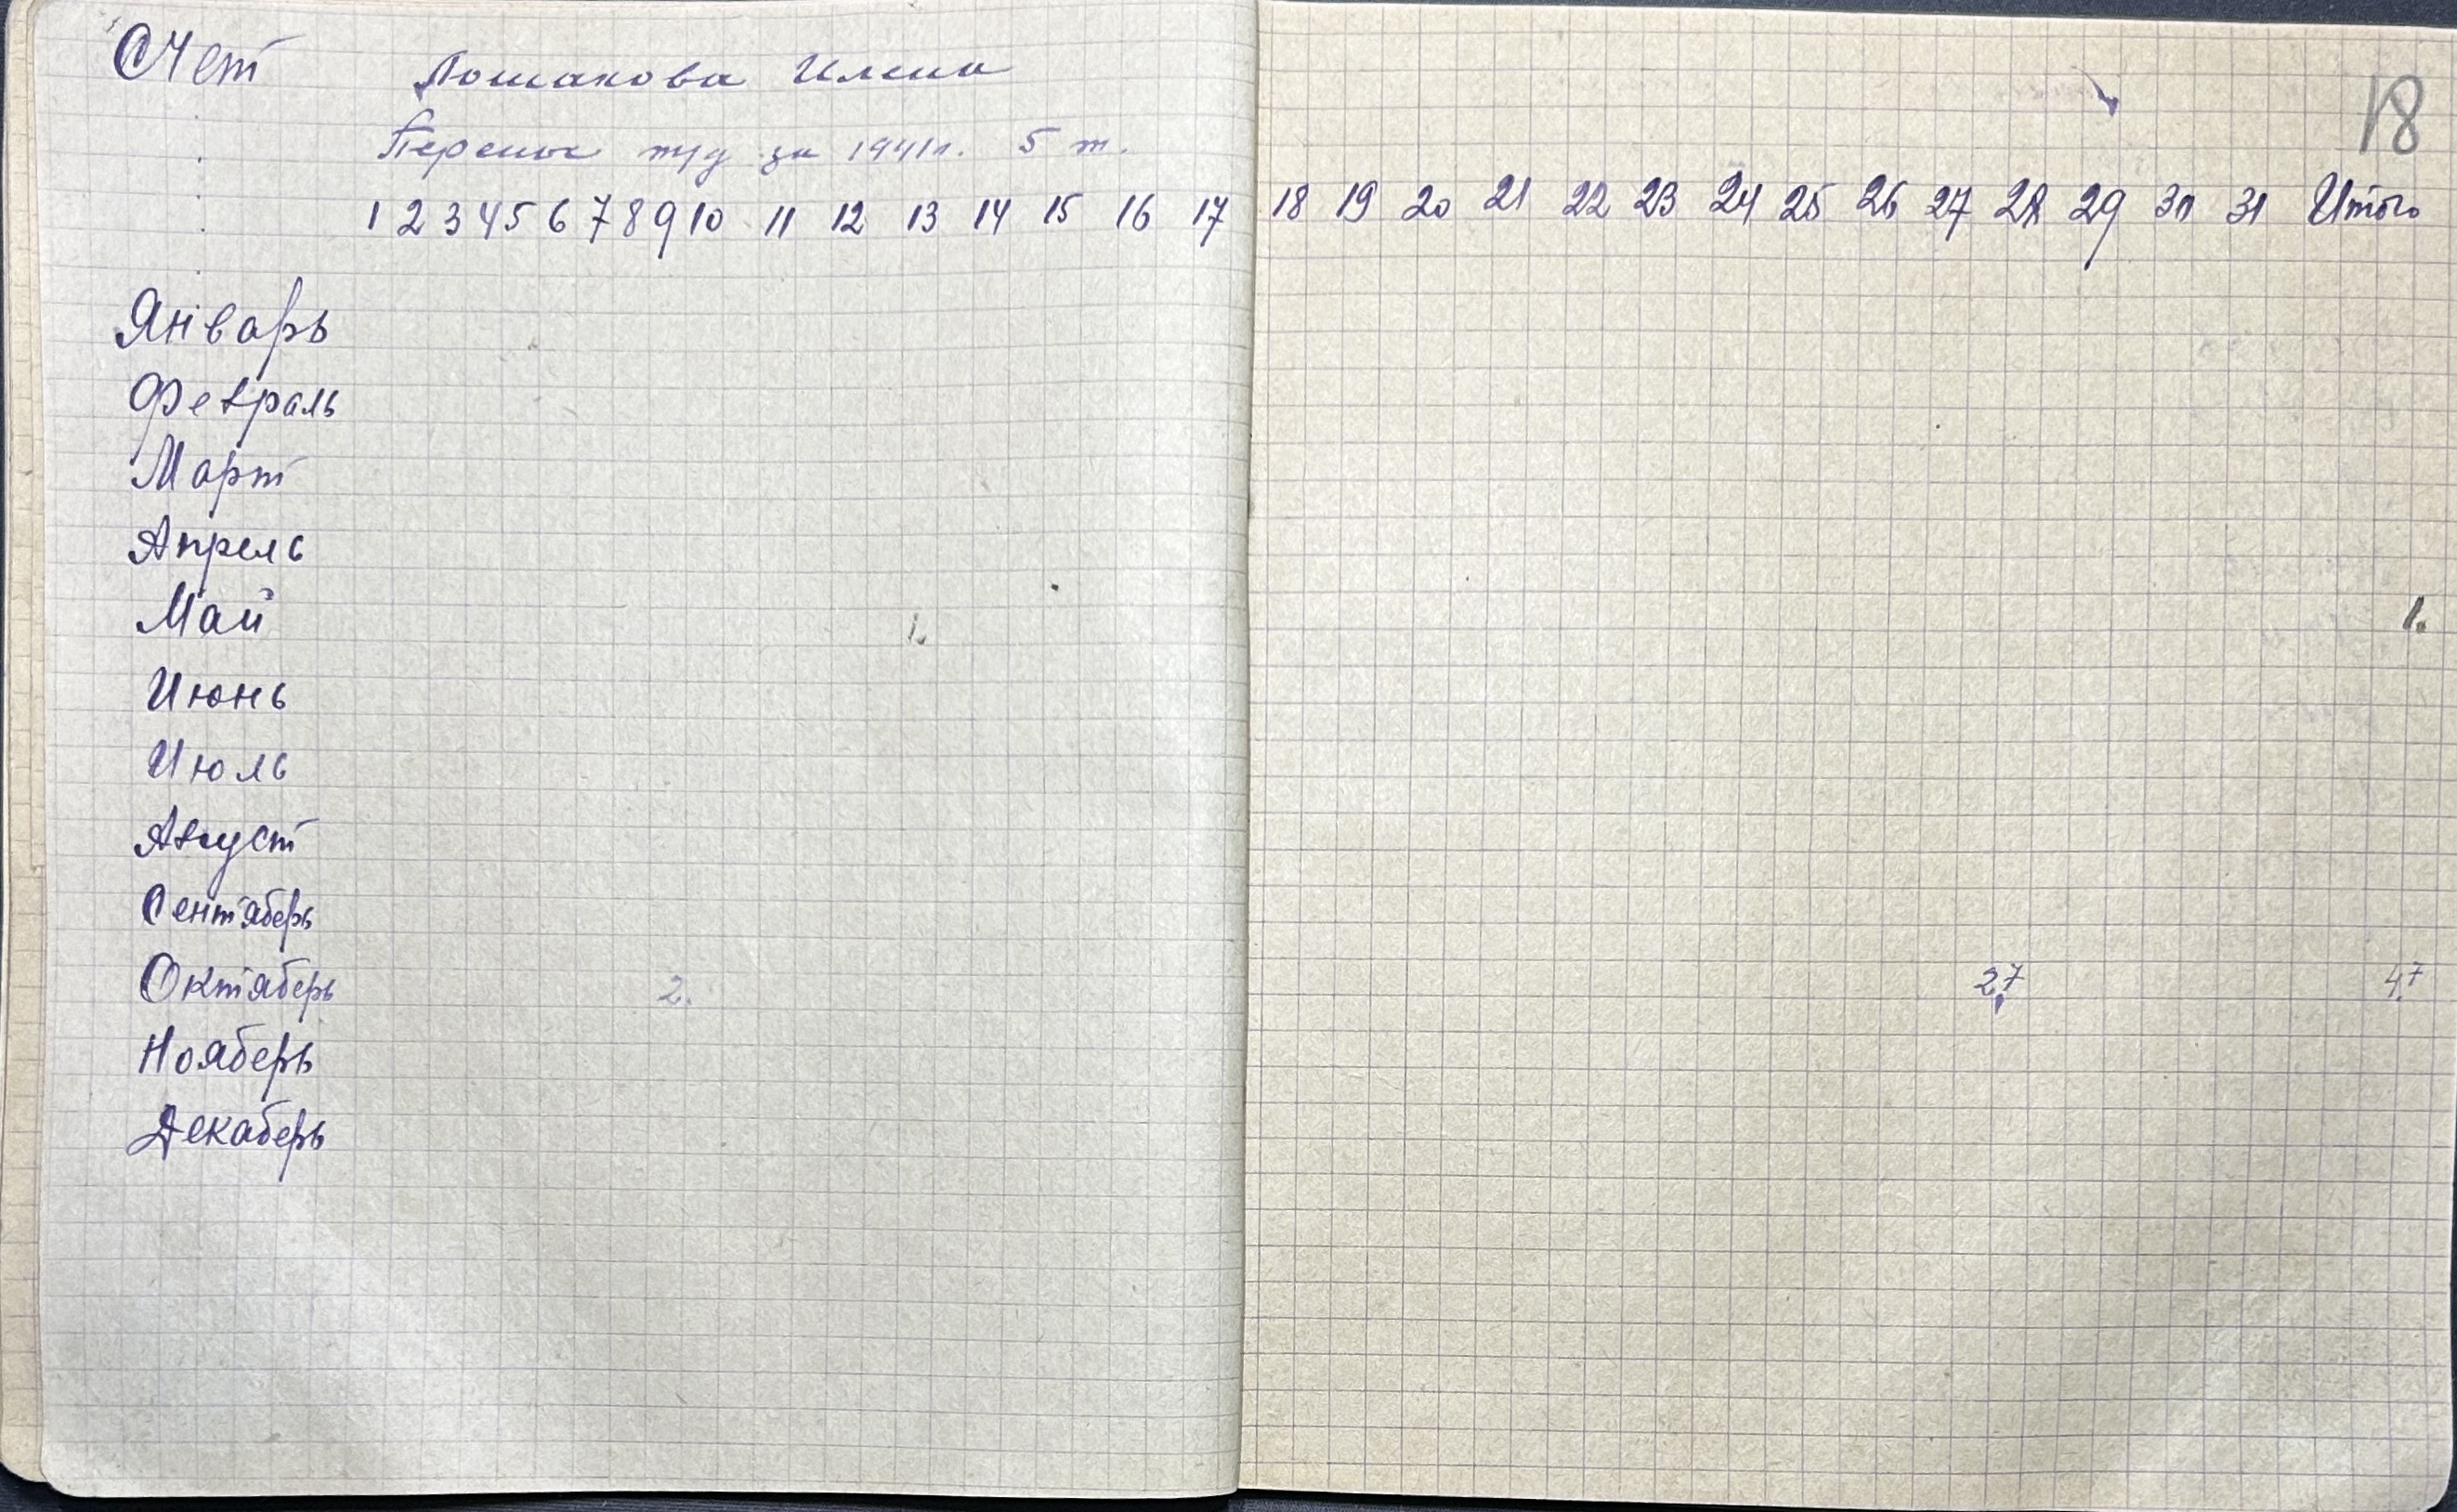 Счет Лошакова Илена
Перенос т/д за 1941г. 5 т.
18
1 2 3 4 5 6 7 8 9 10 11 12 13 14 15 16 17 18 19 20 21 22 23 24 25 26 27 28 29 30 31 Итого
Январь
Февраль
Март
Апрель
Май 1. 1.
Июнь
Июль
Август
Сентяберь
Октяберь 2. 2,7 4,7
Нояберь
Декаберь